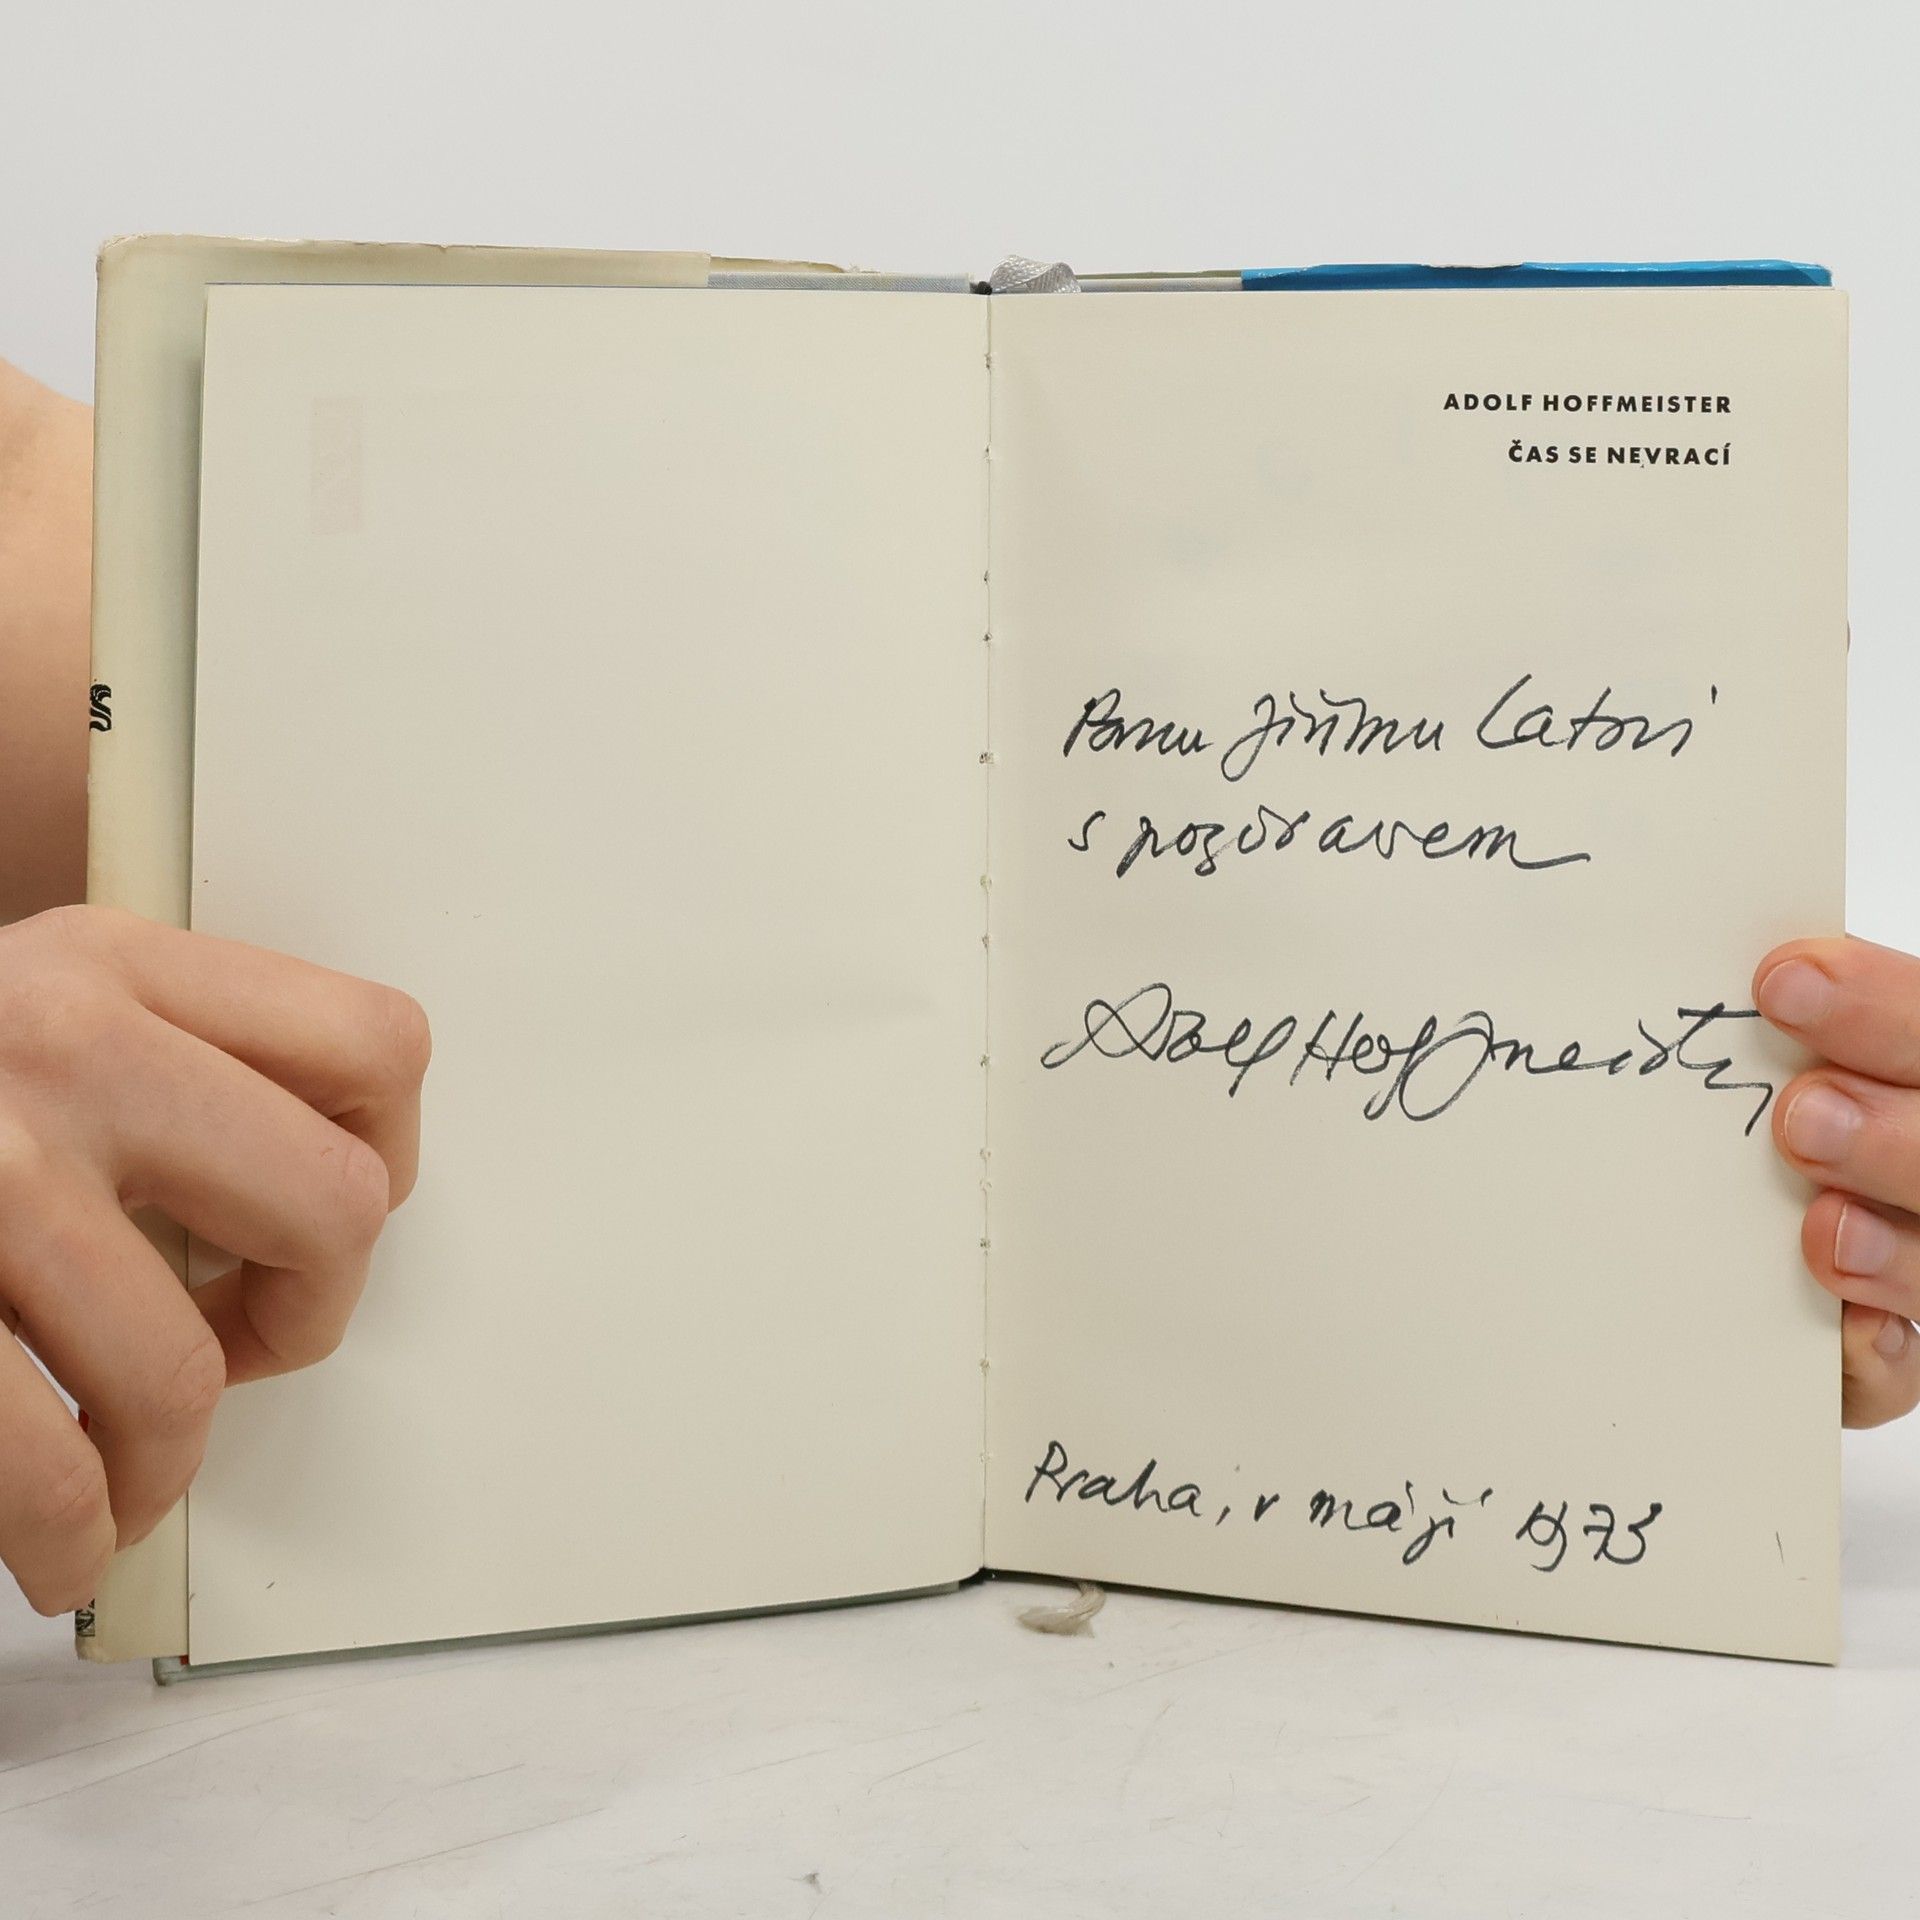 ADOLF HOFFMEISTER
ČAS SE NEVRACÍ
Panu Jiřímu Latovi
s pozdravem
Adolf Hoffmeister
Praha, v máji 1973